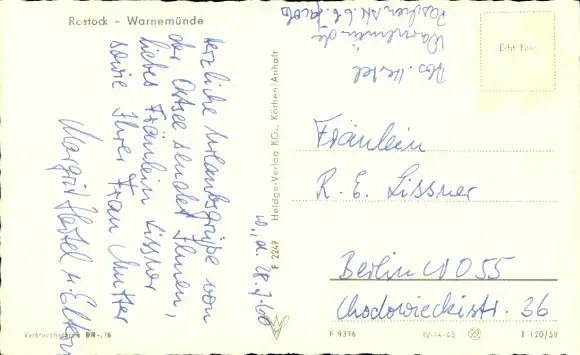 Rostock - Warnemünde
Herzliche Urlaubsgrüße von
der Ostsee sendet Ihnen,
liebes Fräulein Lissner
sowie Ihrer Frau Mutter
Margrit Hertel u. Eltern
W., d. 28.7.60
Abs. Hertel
Warnemünde
b. Jacobs
Echt Foto
Fräulein
R. E. Lissner
Berlin NO 55
Chodowieckistr. 36
F 2247 Heldge-Verlag KG., Köthen/Anhalt
Verbraucherpreis DM -,16
F 9396
IV-14-45
T 120/59